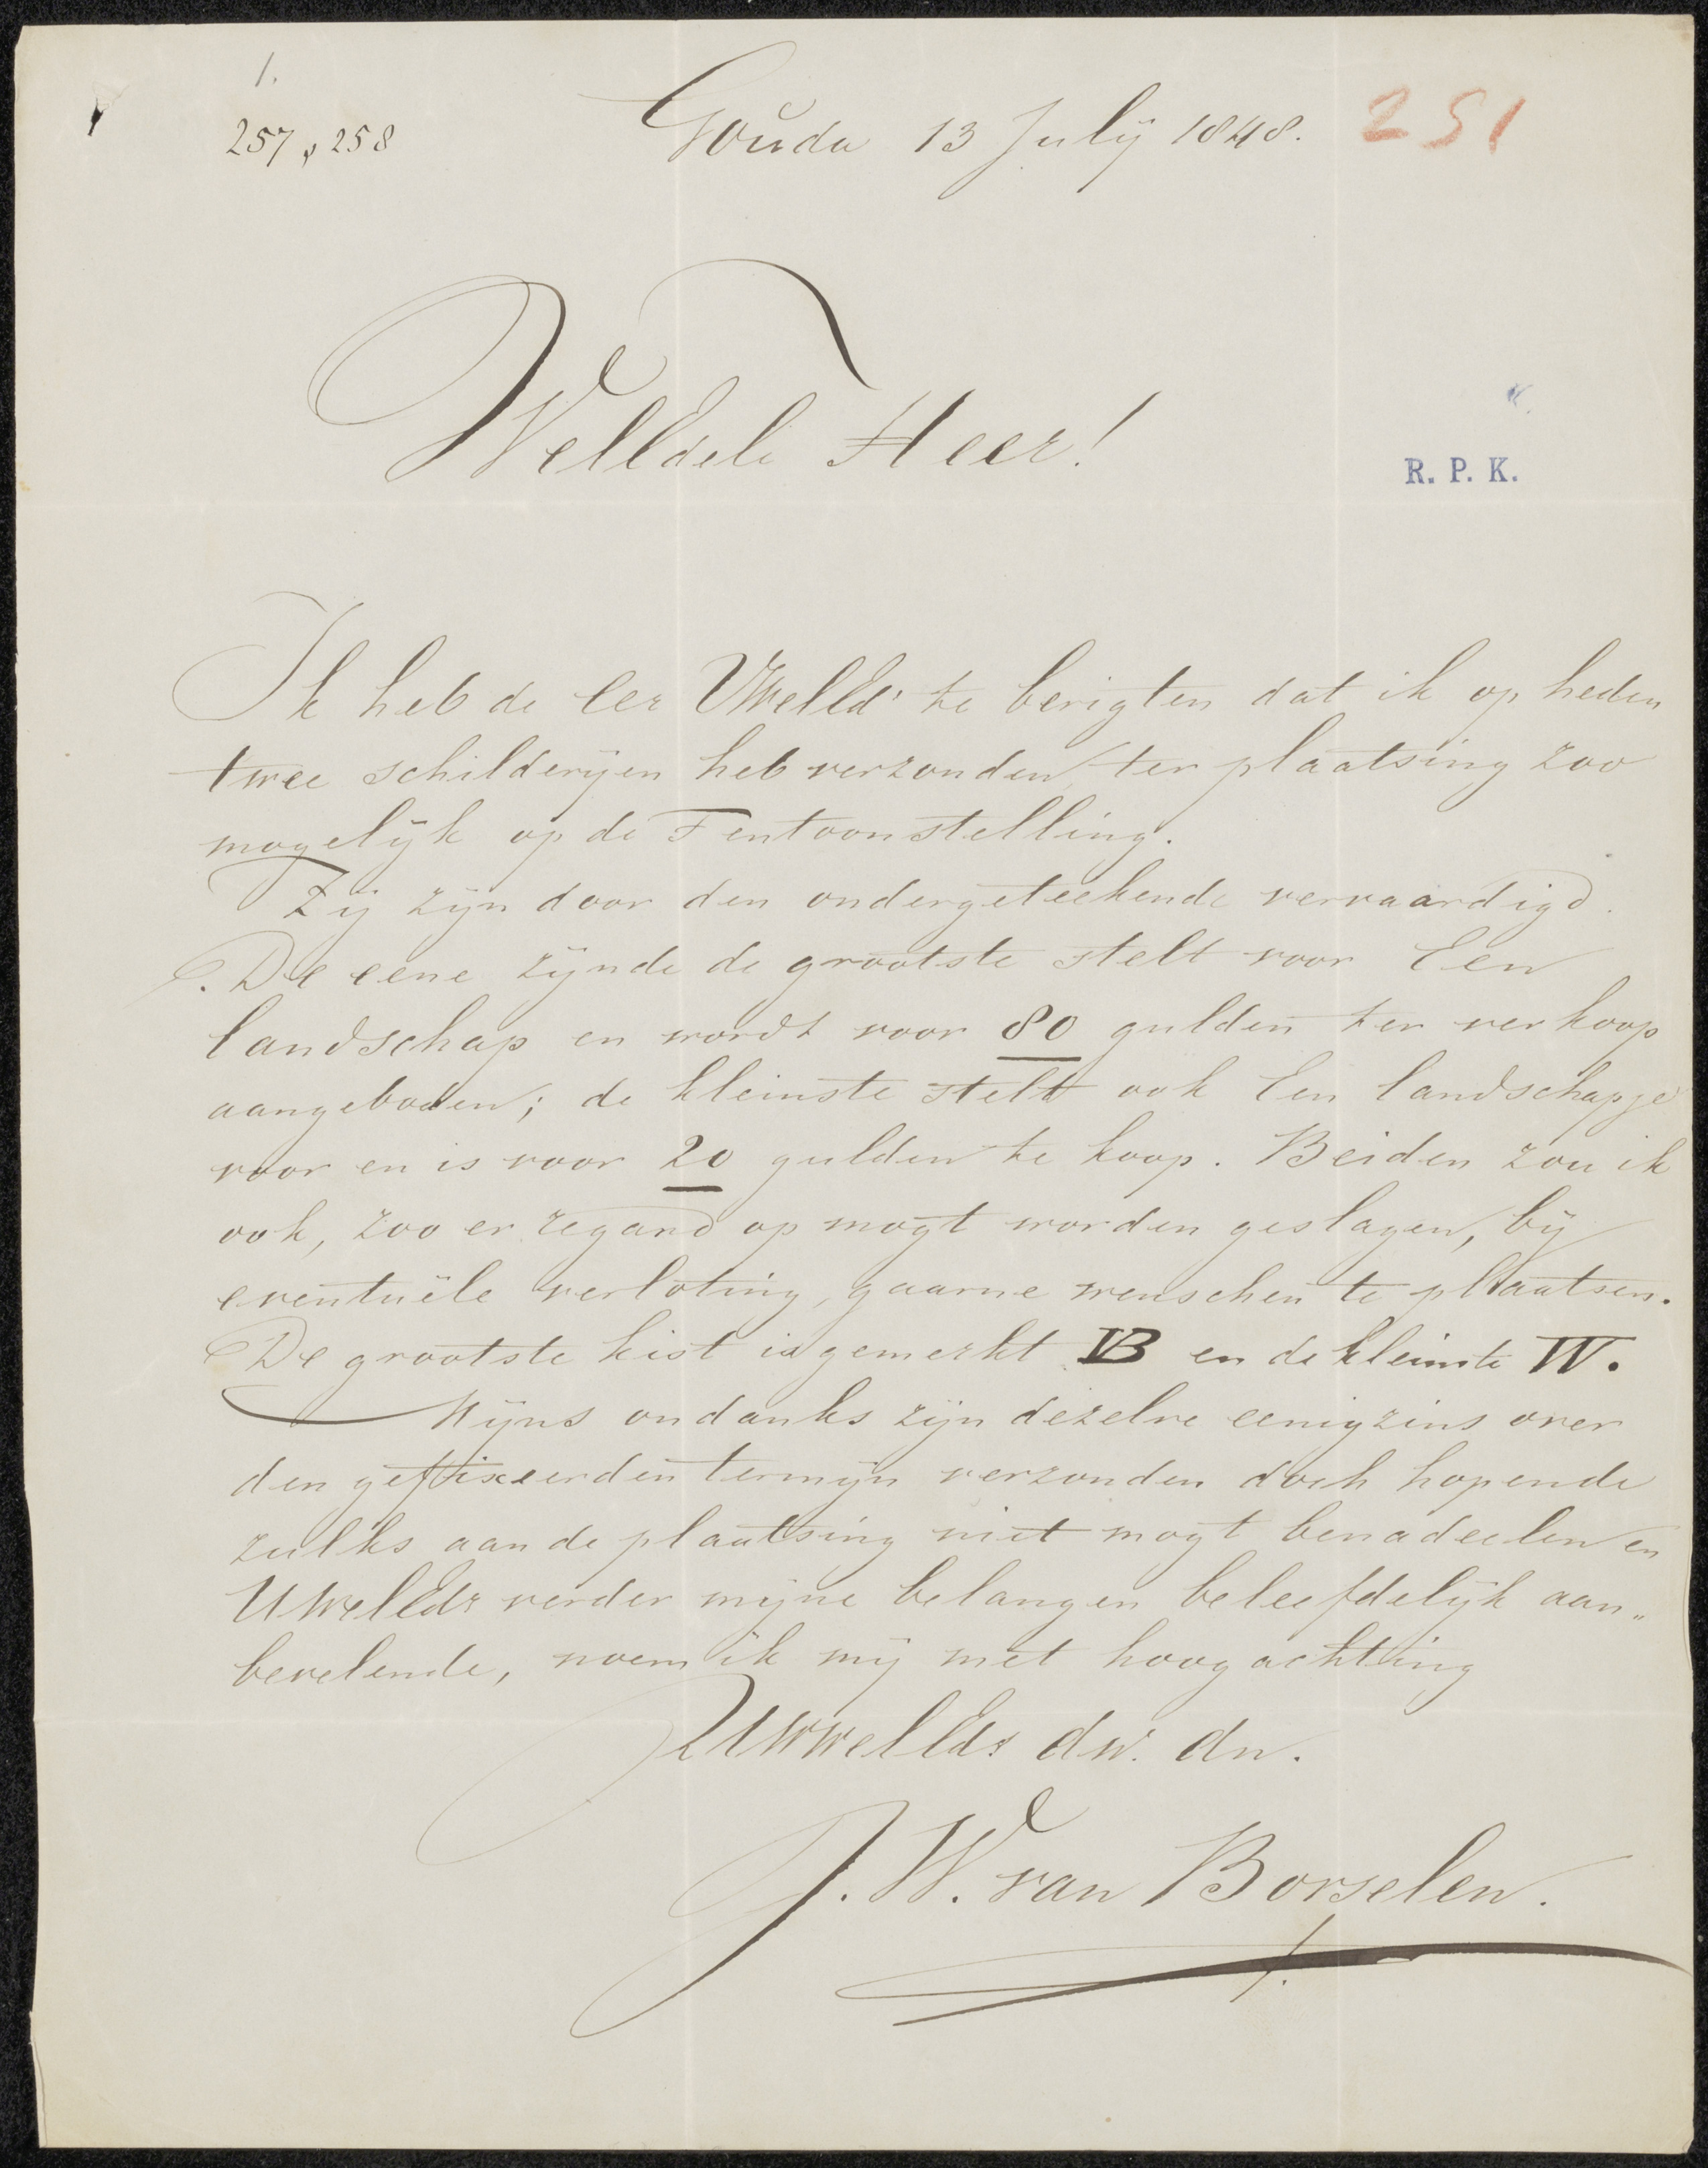 1.
257, 258
Gouda 13 Julÿ 1848.
251
WelEdele Heer!
R. P. K.
Ik heb de eer UwelEd te berigten dat ik op heden
twee schilderÿen heb verzonden, ter plaatsing zoo
mogelÿk op de Tentoonstelling.
Zÿ zÿn door den ondergeteekende vervaardigd.
De eene zÿnde de grootste stelt voor Een
landschap en wordt voor 80 gulden ter verkoop
aangeboden; de kleinste stelt ook Een landschapje
voor en is voor 20 gulden te koop. Beiden zou ik
ook, zoo er regand op mogt worden geslagen, bÿ
eventuële verloting, gaarne wenschen te plaatsen.
De grootste kist is gemerkt VB en de kleinste W.
Mÿns ondanks zÿn dezelve eenigzins over
den gefixeerden termÿn verzonden doch hopende
zulks aan de plaatsing niet mogt benadeelen en
UwelEdr verder mÿne belangen beleefdelÿk aan„
bevelende, noem ik mÿ met hoogachting
UwwelEdr dw. dn.
J. W. van Borselen.